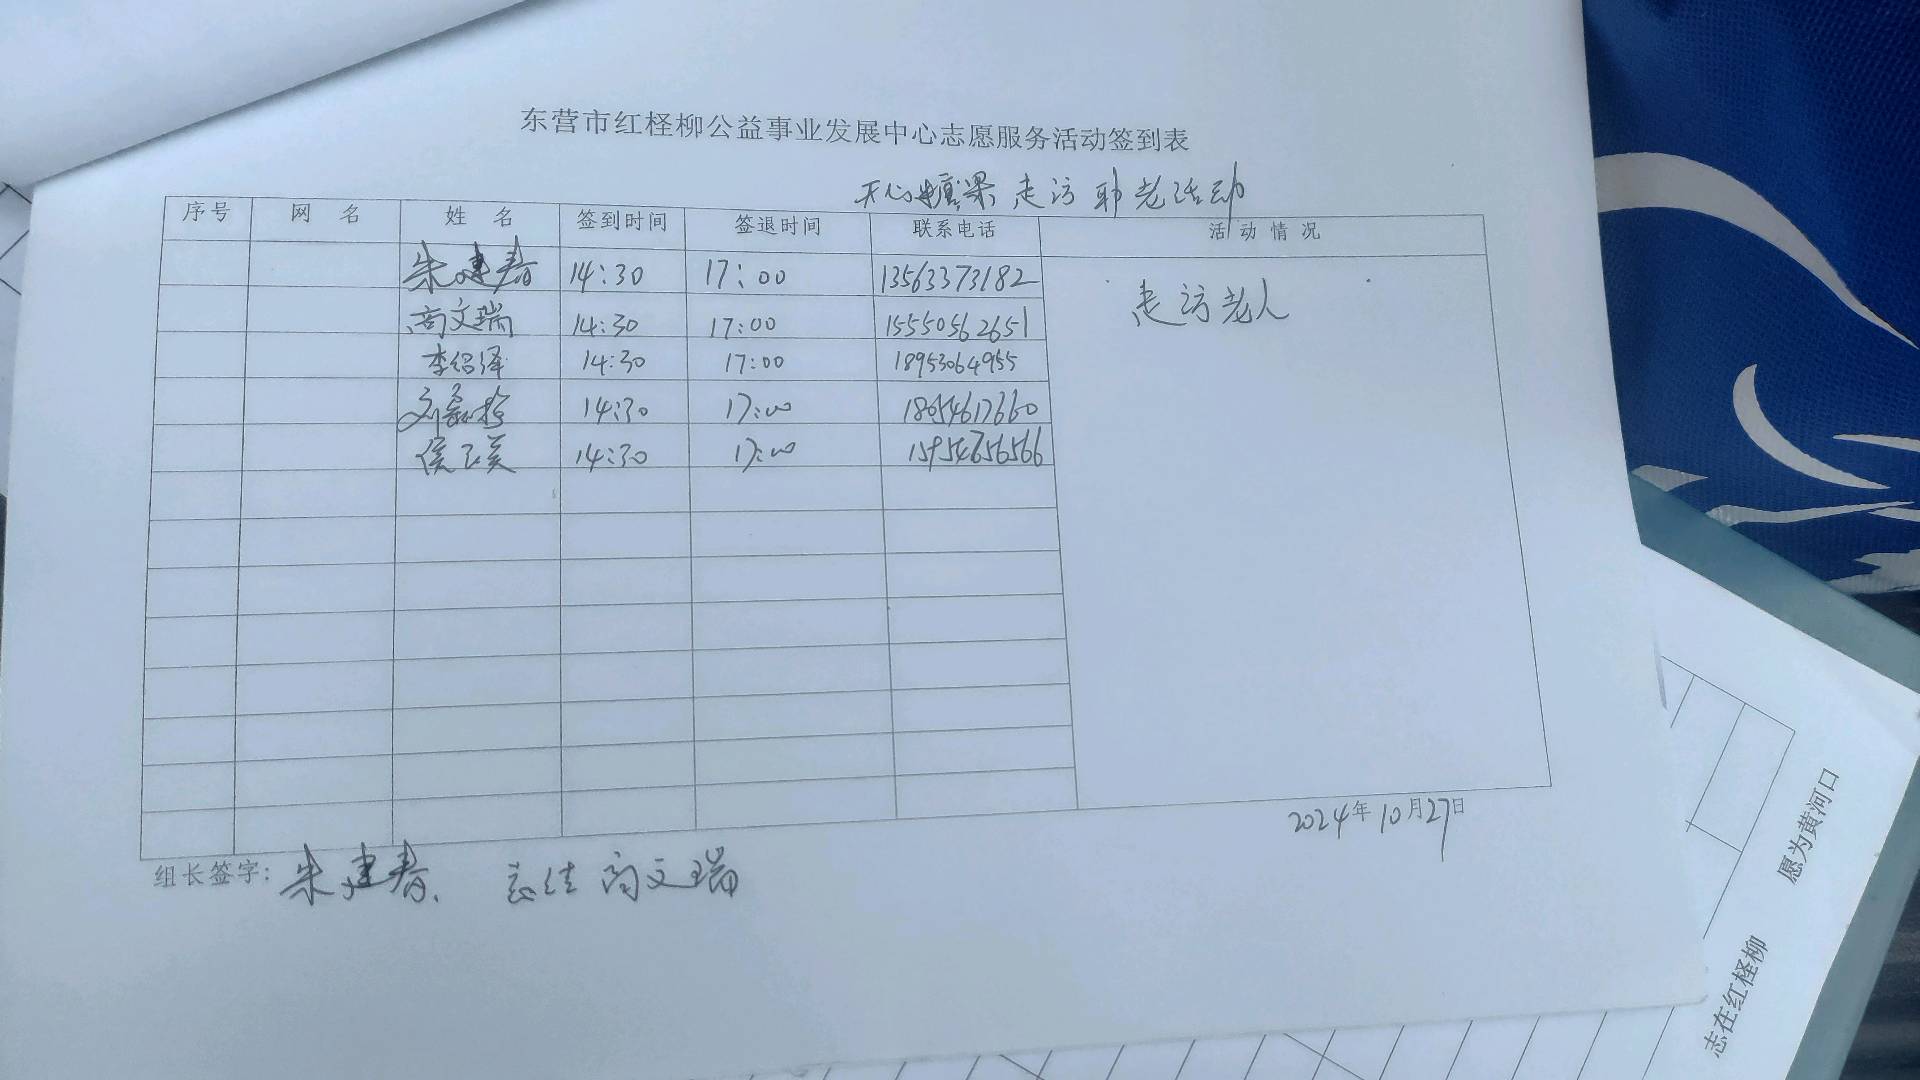 东营市红柽柳公益事业发展中心志愿服务活动签到表
走访 老活动
序号 网 名 姓 名 签到时间 签退时间 联系电话 活 动 情 况
朱建春 14:30 17:00 13563373182 走访老人
高文瑞 14:30 17:00 15550562651
李绍泽 14:30 17:00 18953064955
刘 14:30 17:00 18654617660
侯 美 14:30 17:00 15954656566
2024年10月27日
组长签字: 朱建春. 高文瑞
志在红柽柳 愿为黄河口